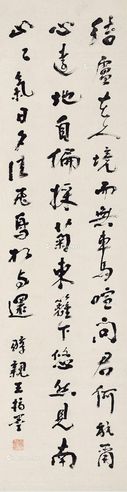 結廬在人境而無車馬喧問君何能爾
心遠地自偏採菊東籬下悠然見南
山々氣日夕佳飛鳥相与還